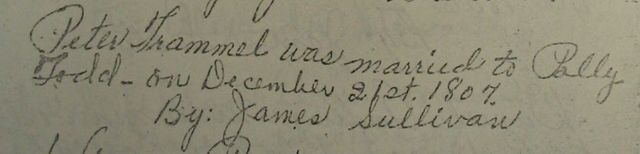 Peter Trammel was married to Polly
Todd - on December 21st. 1807.
By: James Sullivan